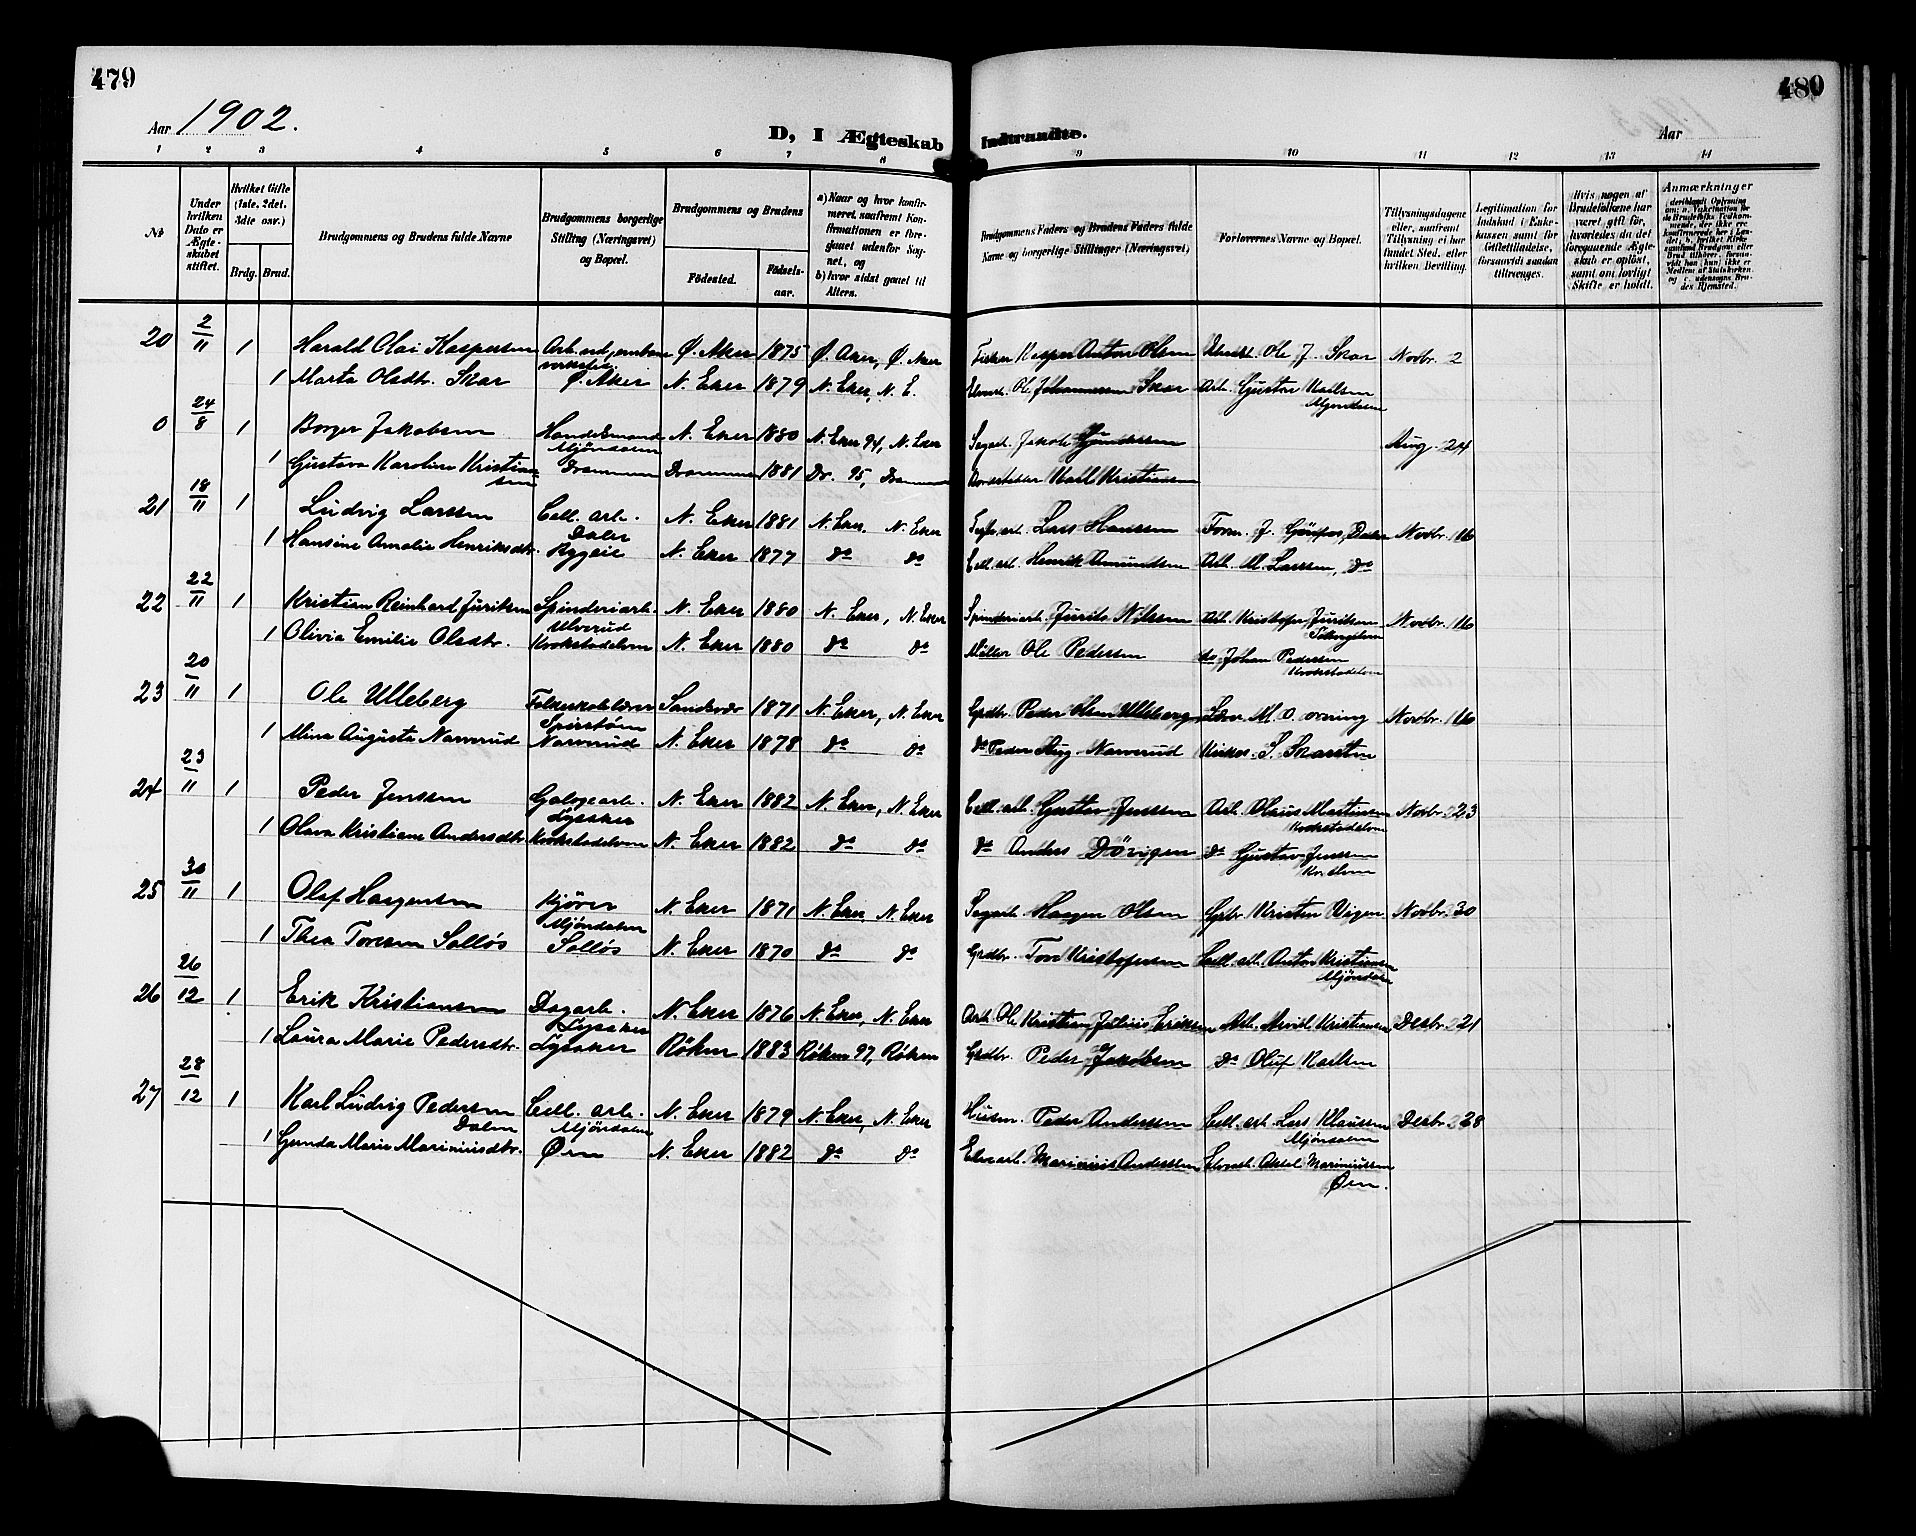 479
480
Aar 1902.
D, I Ægteskab Indtraadte.
Aar
1 2 3 4 5 6 7 8 9 10 11 12 13 14
No
Under hvilken Dato er Ægteskabet stiftet.
Hvilket Gifte (1ste, 2det, 3die osv.)
Brdg. Brud.
Brudgommens og Brudens fulde Navne
Brudgommens borgerlige Stilling (Næringsvei) og Bopæl.
Brudgommens og Brudens
Födested. Födselsaar.
a) Naar og hvor konfirmeret, saafremt Konfirmationen er foregaaet udenfor Sognet, og
b) hvor sidst gaaet til Alters.
Brudgommens Faders og Brudens Faders fulde Navne og borgerlige Stillinger (Næringsvei)
Forlovernes Navne og Bopæl.
Tillysningsdagene eller, saafremt Tillysning ei har fundet Sted, efter hvilken Bevilling.
Legitimation for Indskud i Enkekassen samt for Giftetilladelse, forsaavidt saadan tiltrænges.
Hvis nogen af Brudefolkene har været gift før, hvorledes da det foregaaende Ægteskab er opløst, samt om lovligt Skifte er holdt.
Anmærkninger
20 2/11 1 Harald Olai Kaspersen Arb. ved jernbane Ø. Aker 1875 Ø. Aker, Ø. Aker Fisker Kasper Anton Olsen Ole J. Skar Novbr. 2
1 Marta Olsdtr. Skar Ø. Aker N. Eker 1879 N. Eker, N. E. Ole Johannessen Skar Arb. Gustav Karlsen
Mjøndalen
0 24/8 1 Borger Jakobsen Handelsmand N. Eker 1880 N. Eker 94, N. Eker Sagarb. Jakob Gundersen Aug. 24
Mjøndalen
1 Gustava Karoline Kristiansen Drammen Drammen 1881 Dr. 95, Drammen Karl Kristiansen
21 18/11 1 Ludvig Larssen Cell. arb. N. Eker 1881 N. Eker, N. Eker Lars Hanssen Form. J. Novbr. 16
Daler
1 Hansine Amalie Henriksdtr. Ryggeie N. Eker 1877 do do Cell. arb. Henrik Amundsen Arb. M. Larssen, do
22 22/11 1 Kristian Reinhard Juriksen Spinderiarb. N. Eker 1880 N. Eker, N. Eker Spinderiarb. Nilssen Arb. Kristofer Juriksen Novbr. 16
Ulverud
1 Olivia Emilie Olsdtr. Krokstadelven N. Eker 1880 do do Møller Ole Pedersen do Johan Pedersen
Krokstadelven
23 20/11 1 Ole Ulleberg Folkeskolelærer Sandsvær 1871 N. Eker, N. Eker Grdbr. Peder Olsen Ulleberg Lærer M. O. Novbr. 16
1 Mina Augusta Narverud Narverud N. Eker 1878 do do do Peder Aug. Narverud Kirkes. S. Skarsten
24 23/11 1 Peder Jenssen Galogearb. N. Eker 1882 N. Eker, N. Eker Cell. arb. Gustav Jenssen Arb. Olaus Martinsen Novbr. 23
Lyssker Krokstadelven
1 Olava Kristiane Andersdtr. Krokstadelven N. Eker 1882 do do do Anders Døvigen do Gustav Jenssen
25 30/11 1 Olaf Haagensen Kjører N. Eker 1871 N. Eker, N. Eker Sagarb. Haagen Olsen Grbr. Kristen Vigen Novbr. 30
Mjøndalen
1 Thea Toresen Solløs Solløs N. Eker 1870 do do Grdbr. Tore Kristofersen Cell. arb. Anton Kristiansen
Mjøndalen
26 26/12 1 Erik Kristiansen Dagarb. N. Eker 1876 N. Eker, N. Eker Arb. Ole Kristian Julius Eriksen Arb. Arvid Kristiansen Desbr. 21
Lyssker
1 Laura Marie Pedersdtr. Lyssker Røken 1883 Røken 97, Røken Grdbr. Peder Jakobsen do Oluf Karlsen
27 28/12 1 Karl Ludvig Pedersen Cell. arb. N. Eker 1879 N. Eker, N. Eker Husm. Peder Andersen Cell. arb. Lars Klaussen Desbr. 28
Dalen Mjøndalen Mjøndalen
1 Gunda Marie Mariniusdtr. Øen N. Eker 1882 do do Elvearb. Marinius Anderssen Elvearb. Aksel Mariniussen
Øen.